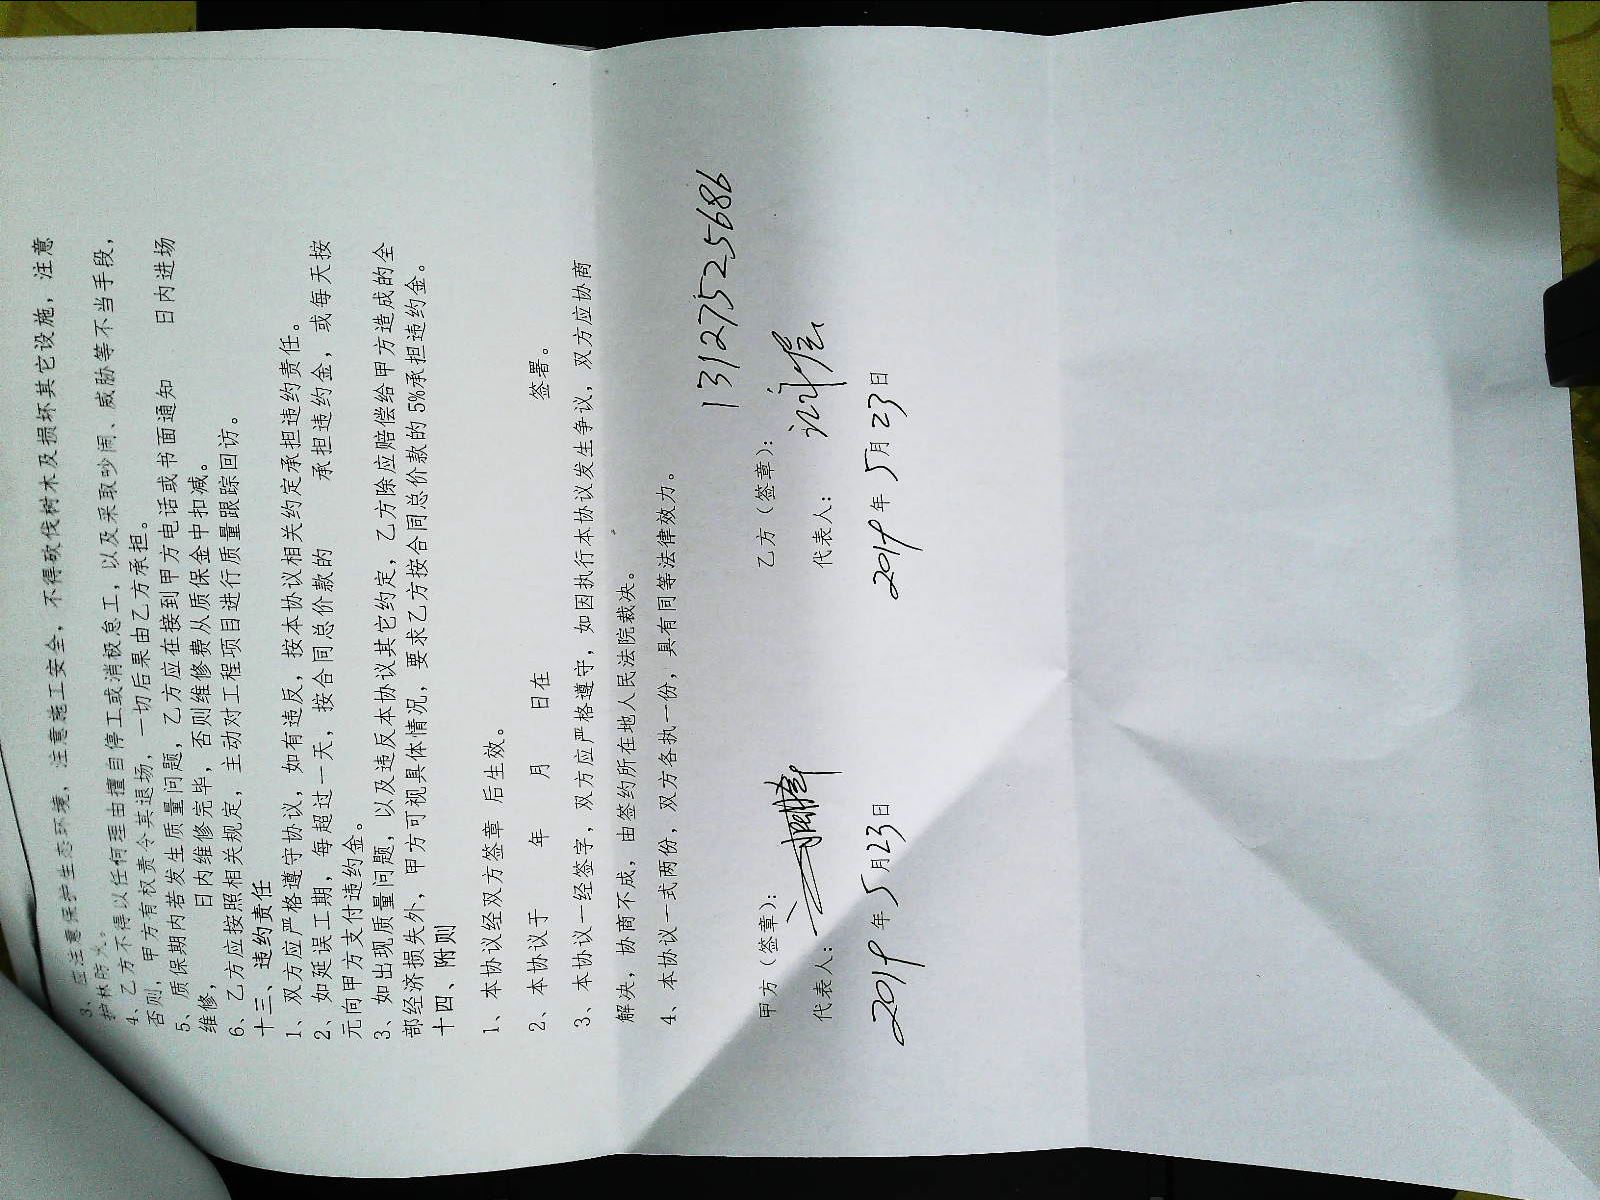 3、应注意保护生态环境，注意施工安全，不得砍伐树木及损坏其它设施，注意
护林防火。
4、乙方不得以任何理由擅自停工或消极怠工，以及采取吵闹、威胁等不当手段，
否则，甲方有权责令其退场，一切后果由乙方承担。
5、质保期内若发生质量问题，乙方应在接到甲方电话或书面通知 日内进场
维修， 日内维修完毕，否则维修费从质保金中扣减。
6、乙方应按照相关规定，主动对工程项目进行质量跟踪回访。
十三、违约责任
1、双方应严格遵守协议，如有违反，按本协议相关约定承担违约责任。
2、如延误工期，每超过一天，按合同总价款的 承担违约金，或每天按
元向甲方支付违约金。
3、如出现质量问题，以及违反本协议其它约定，乙方除应赔偿给甲方造成的全
部经济损失外，甲方可视具体情况，要求乙方按合同总价款的5%承担违约金。
十四、附则
1、本协议经双方签章 后生效。
2、本协议于 年 月 日在 签署。
3、本协议一经签字，双方应严格遵守，如因执行本协议发生争议，双方应协商
解决，协商不成，由签约所在地人民法院裁决。
4、本协议一式两份，双方各执一份，具有同等法律效力。
13127525686
甲方（签章）： 乙方（签章）：
代表人： 代表人：
2019年5月23日 2019年5月23日